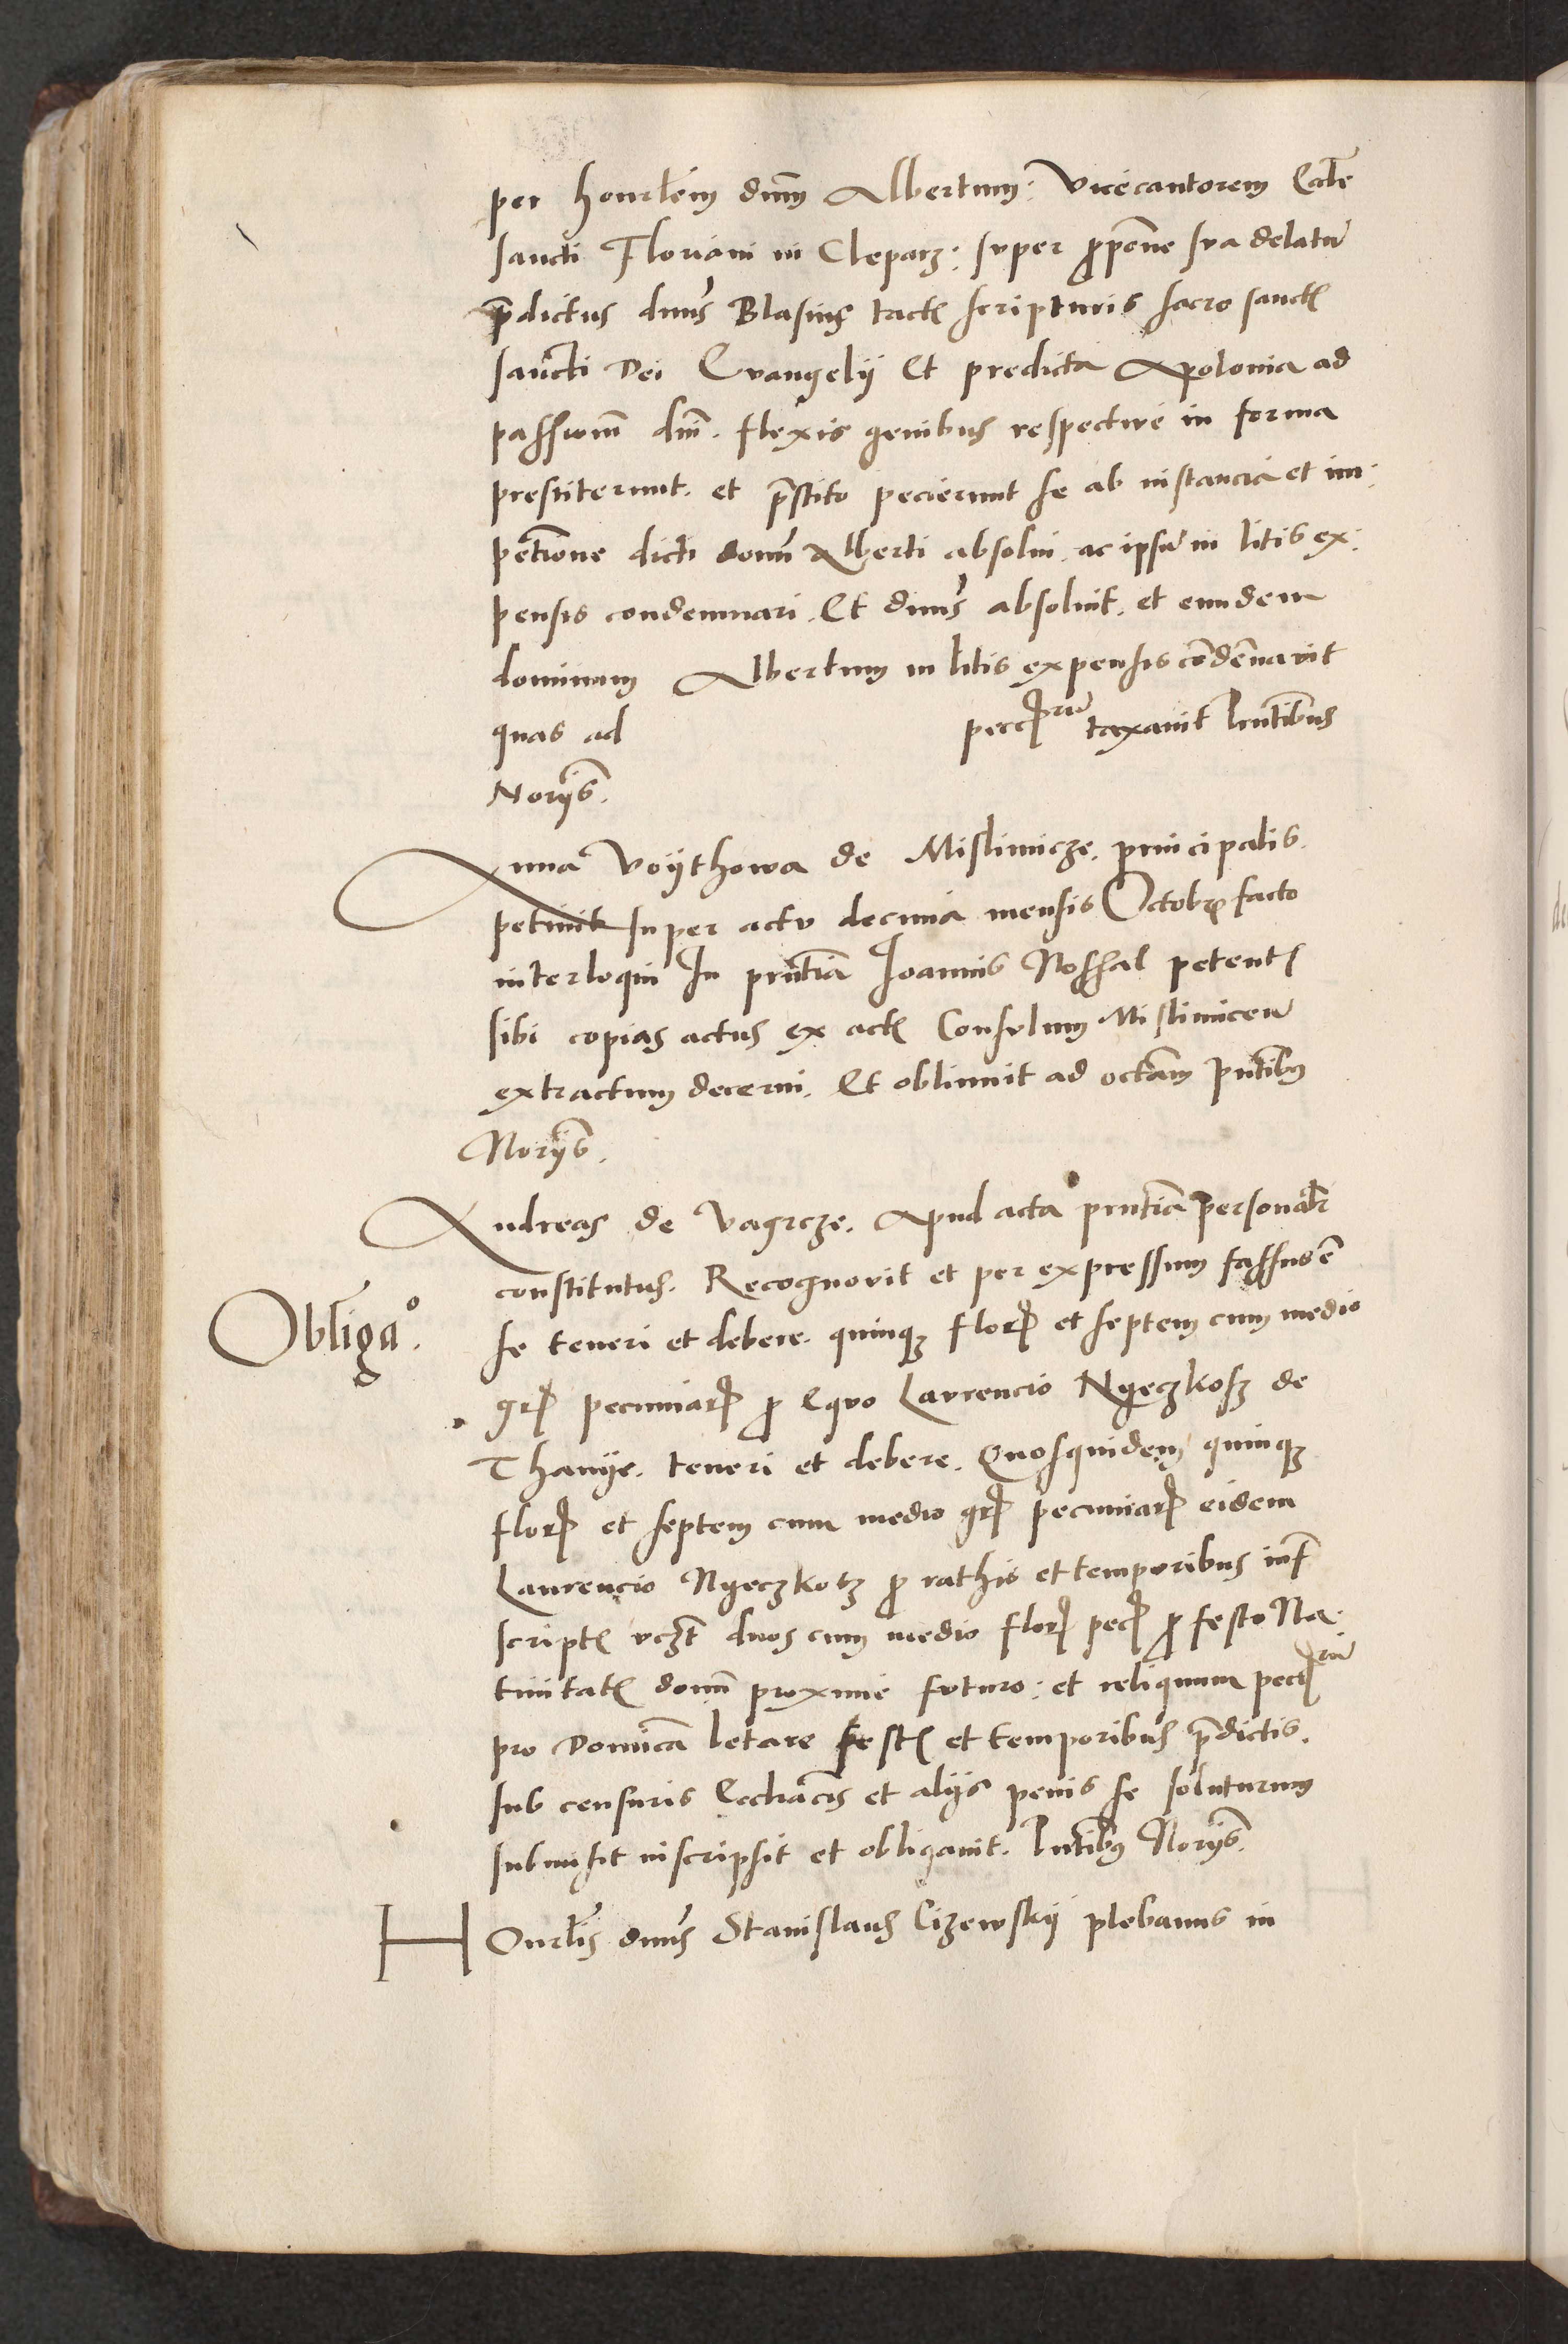 per honrlem dnm Albertum: Vicecantorem Eccle
sancti Floriani in Cleparz: super ppone sua delatu
pdictus dnus Blasius tact scripturis sacro sanct
sancti Dei Evangelij Et predicta Apolonia ad
passionem dni. flexis genibus respective in forma
prestiterunt. et pstito pecierunt se ab instancia et im:
petitione dicti domi Alberti absolui. ac ipsu in litis ex:
pensis condemnari. Et dnus absoluit. et eundem
dominum Albertum in litis expensis condemnavit
quas ad pecc taxavit pntibus
Norijs.
Anna Voythowa de Mislimicze. principalis.
petivit super actu decima mensis Octobr facto
interloqui In pntia Joannis Nossal petent
sibi copias actus ex act Consulum Mislimicen
extractum decerni. Et obtinuit ad octam pntibus
Norijs.
Andreas de Vagrcze. Apud acta pntia personalr
constitutus. Recognovit et per expressum fassus e
Obliga°.
se teneri et debere. quinq flor et septem cum medio
gr pecuniar p Equo Laurencio Nyeczkosz de
Thanye. teneri et debere. Quosquidem quinq
flor et septem cum medio gr pecuniar eidem
Laurencio Nyeczkosz p rathis et temporibus inf
script vczt duos cum medio flor pec p festo Na:
tivitat domi proxime futuro: et reliquum pecc
pro Domica letare fest et temporibus pdictis.
sub censuris Ecclacis et alijs penis se soluturum
submisit inscripsit et obligavit. pntibus Norijs.
Honrlis dnus Stanislaus Cizewskij plebanus in